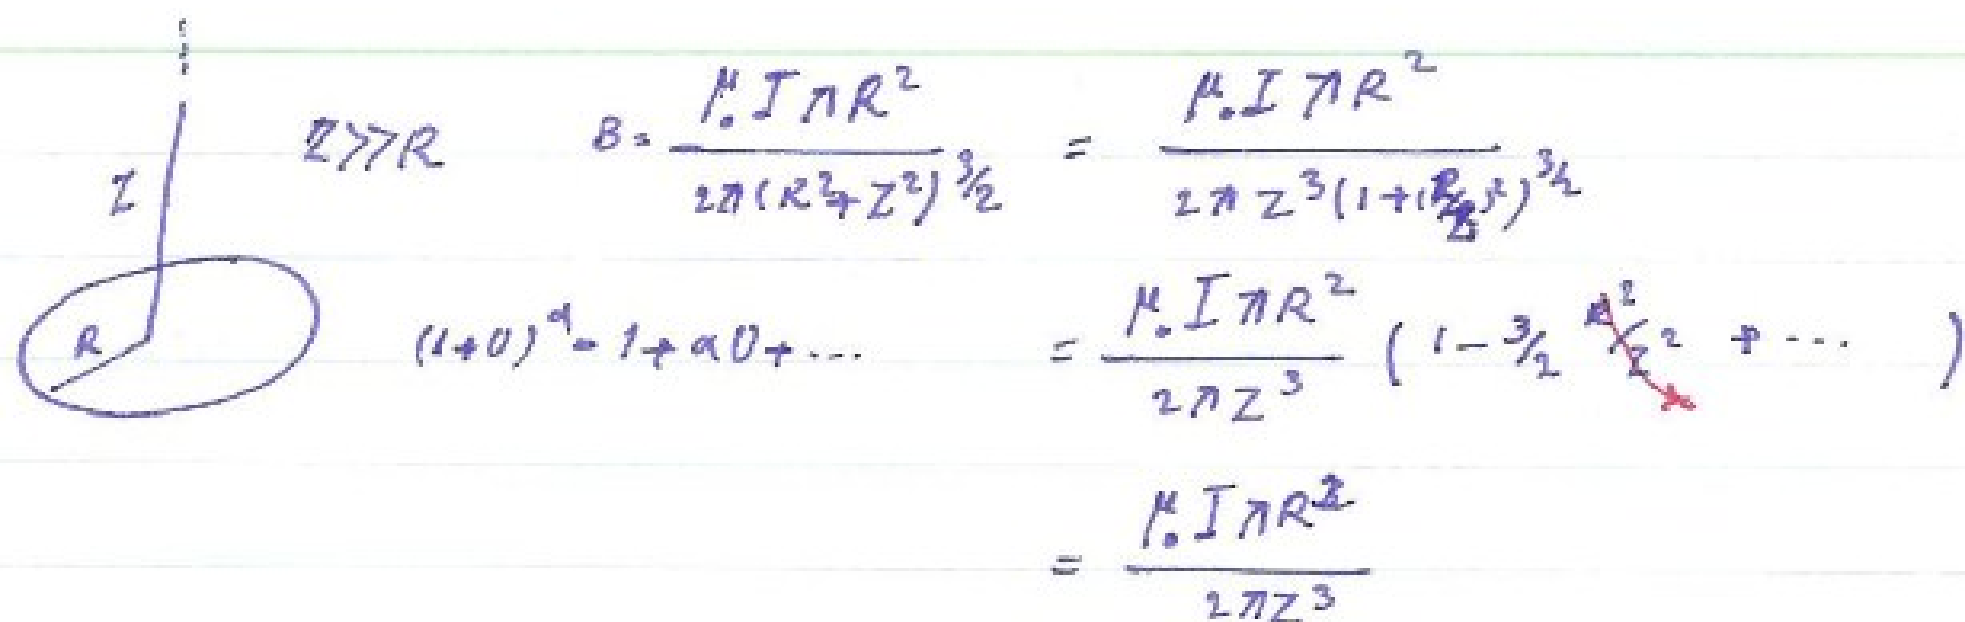 Z>>R B = μ₀IπR² / 2π(R²+Z²)^3/2 = μ₀IπR² / 2πZ³(1+(R/Z)²)^3/2
Z
R (1+U)^α = 1+αU+... = μ₀IπR² / 2πZ³ (1 - 3/2 R²/Z² + ... )
= μ₀IπR² / 2πZ³